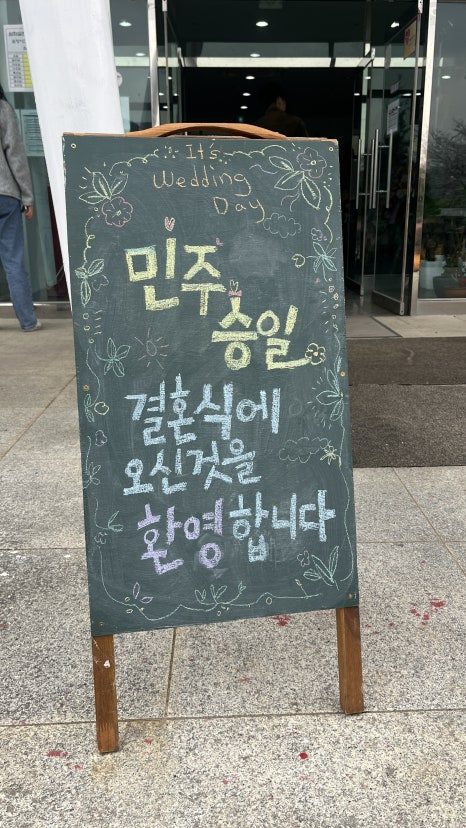 It's
Wedding
Day
민주
승일
결혼식에
오신것을
환영합니다